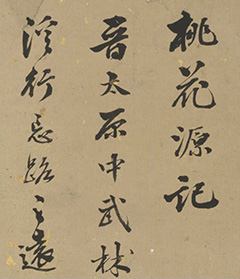 桃花源記
晉太原中武林
溪行忘路之遠